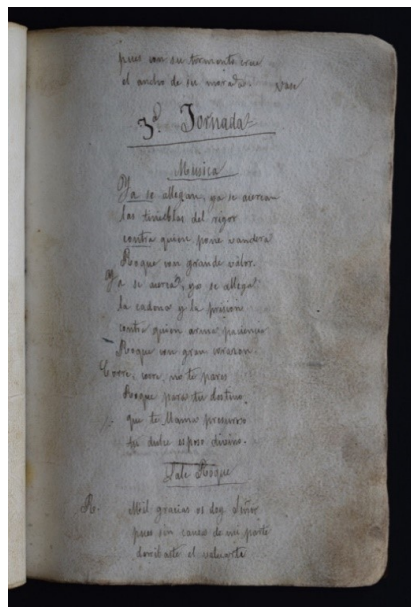 pues con su tormento cruel
el ancho de su mar Vase
3ª Jornada
Musica
Ya se allegan, ya se acercan
las tinieblas del rigor
contra quien pone vandera
Roque con grande valor.
Ya se acerca, ya se allega
la cadena y la prision
contra quien arma paciencia
Roque con gran corazon.
Corre, corre no te pares
Roque para tu destino,
que te llama presuroso
tu dulce esposo divino.
Sale Roque
R. Mil gracias os doy Señor
pues sin causa de mi parte
el valuarte